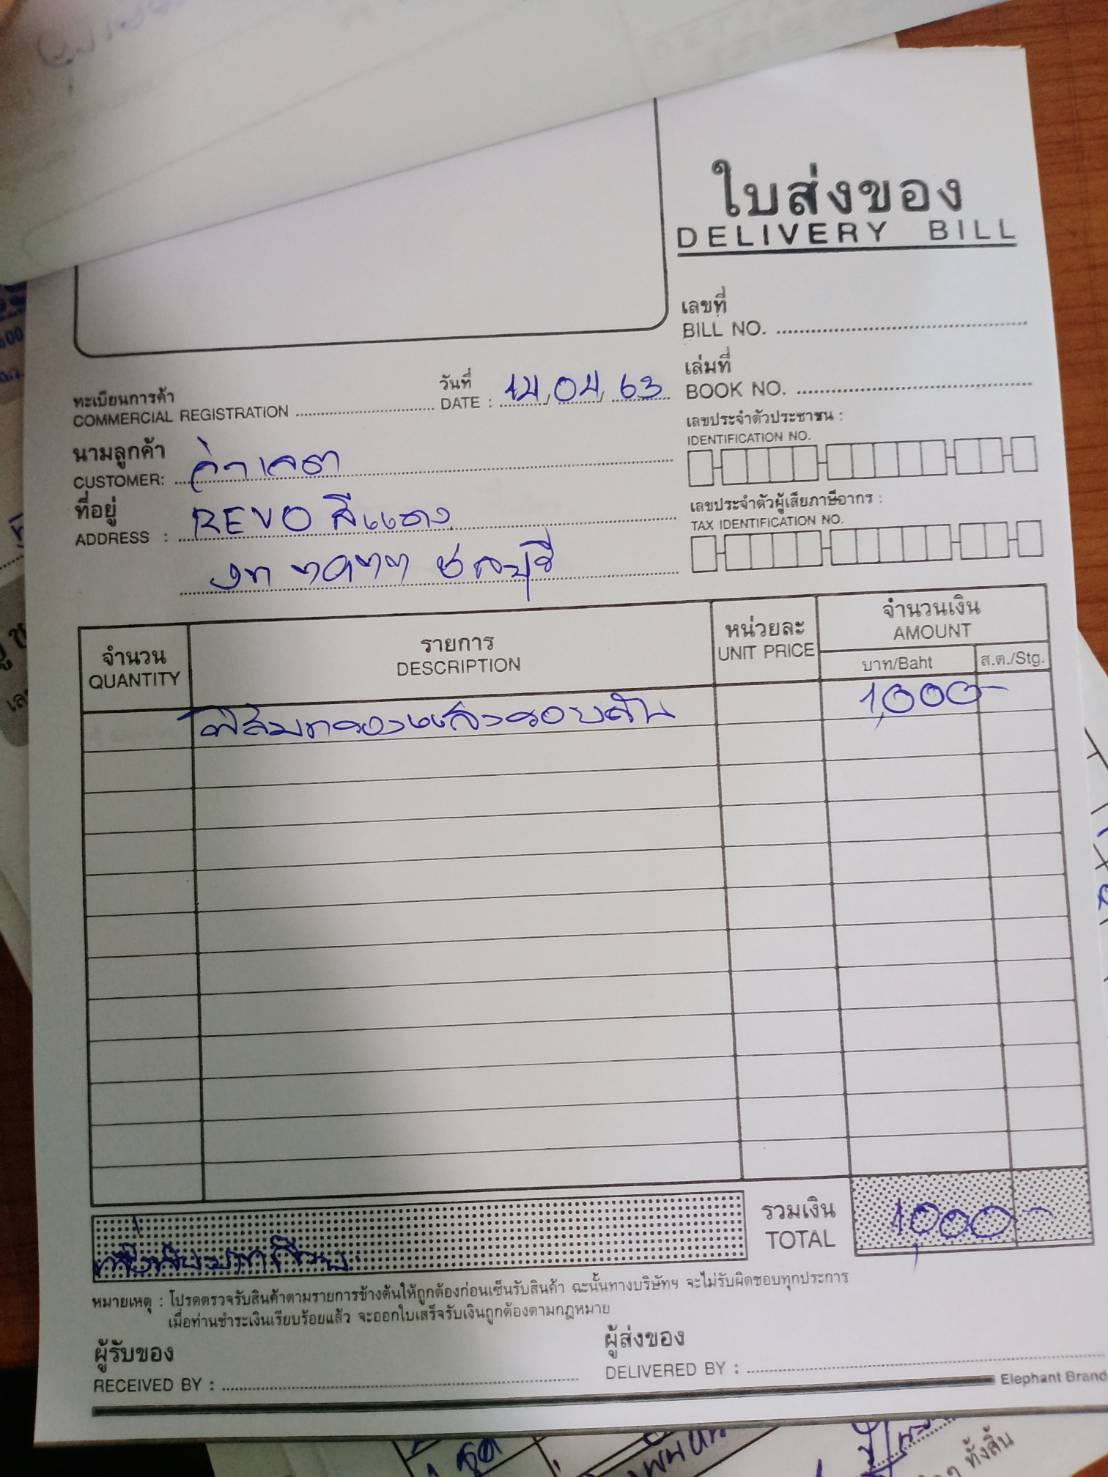 ใบส่งของ
DELIVERY BILL
เลขที่
BILL NO.
เล่มที่
BOOK NO.
ทะเบียนการค้า
COMMERCIAL REGISTRATION
วันที่
DATE : 14, 04, 63
เลขประจำตัวประชาชน :
IDENTIFICATION NO.
นามลูกค้า
CUSTOMER:
ที่อยู่ REVO สีแดง
ADDRESS :
ชลบุรี
เลขประจำตัวผู้เสียภาษีอากร :
TAX IDENTIFICATION NO.
จำนวน
QUANTITY
รายการ
DESCRIPTION
หน่วยละ
UNIT PRICE
จำนวนเงิน
AMOUNT
บาท/Baht
ส.ต./Stg.
ฟิล์มกรองแสงรอบคัน 1,000-
รวมเงิน
TOTAL
1,000-
หมายเหตุ : โปรดตรวจรับสินค้าตามรายการข้างต้นให้ถูกต้องก่อนเซ็นรับสินค้า ฉะนั้นทางบริษัทฯ จะไม่รับผิดชอบทุกประการ
เมื่อท่านชำระเงินเรียบร้อยแล้ว จะออกใบเสร็จรับเงินถูกต้องตามกฎหมาย
ผู้รับของ
RECEIVED BY :
ผู้ส่งของ
DELIVERED BY :
Elephant Brand
ทั้งสิ้น